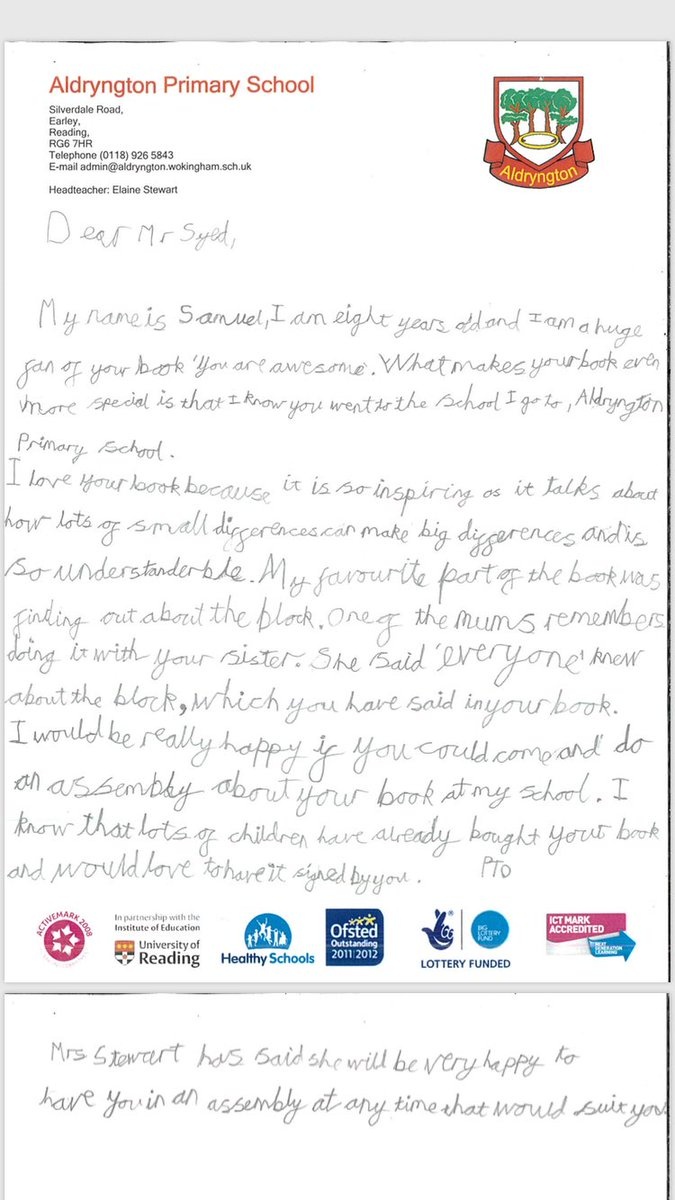 Aldryngton Primary School
Silverdale Road,
Earley,
Reading,
RG6 7HR
Telephone (0118) 926 5843
E-mail admin@aldryngton.wokingham.sch.uk
Headteacher: Elaine Stewart
Aldryngton
Dear Mr Syed,
My name is Samuel, I am eight years old and I am a huge
fan of your book 'You are awesome. What makes your book even
more special is that I know you went to the school I go to, Aldryngton
Primary school.
I love your book because it is so inspiring as it talks about
how lots of small differences can make big differences and is
so understanderble. My favourite part of the book was
finding out about the block. One of the mums remembers
doing it with your sister. She said 'everyone' knew
about the block, which you have said in your book.
I would be really happy if you could come and do
an assembly about your book at my school. I
know that lots of children have already bought your book
and would love to have it signed by you. PTO
ACTIVEMARK 2008
In partnership with the
Institute of Education
University of
Reading
Healthy Schools
Ofsted
Outstanding
2011|2012
BIG
LOTTERY
FUND
LOTTERY FUNDED
ICT MARK
ACCREDITED
NEXT
GENERATION
LEARNING
Mrs Stewart has said she will be very happy to
have you in an assembly at any time that would suit you